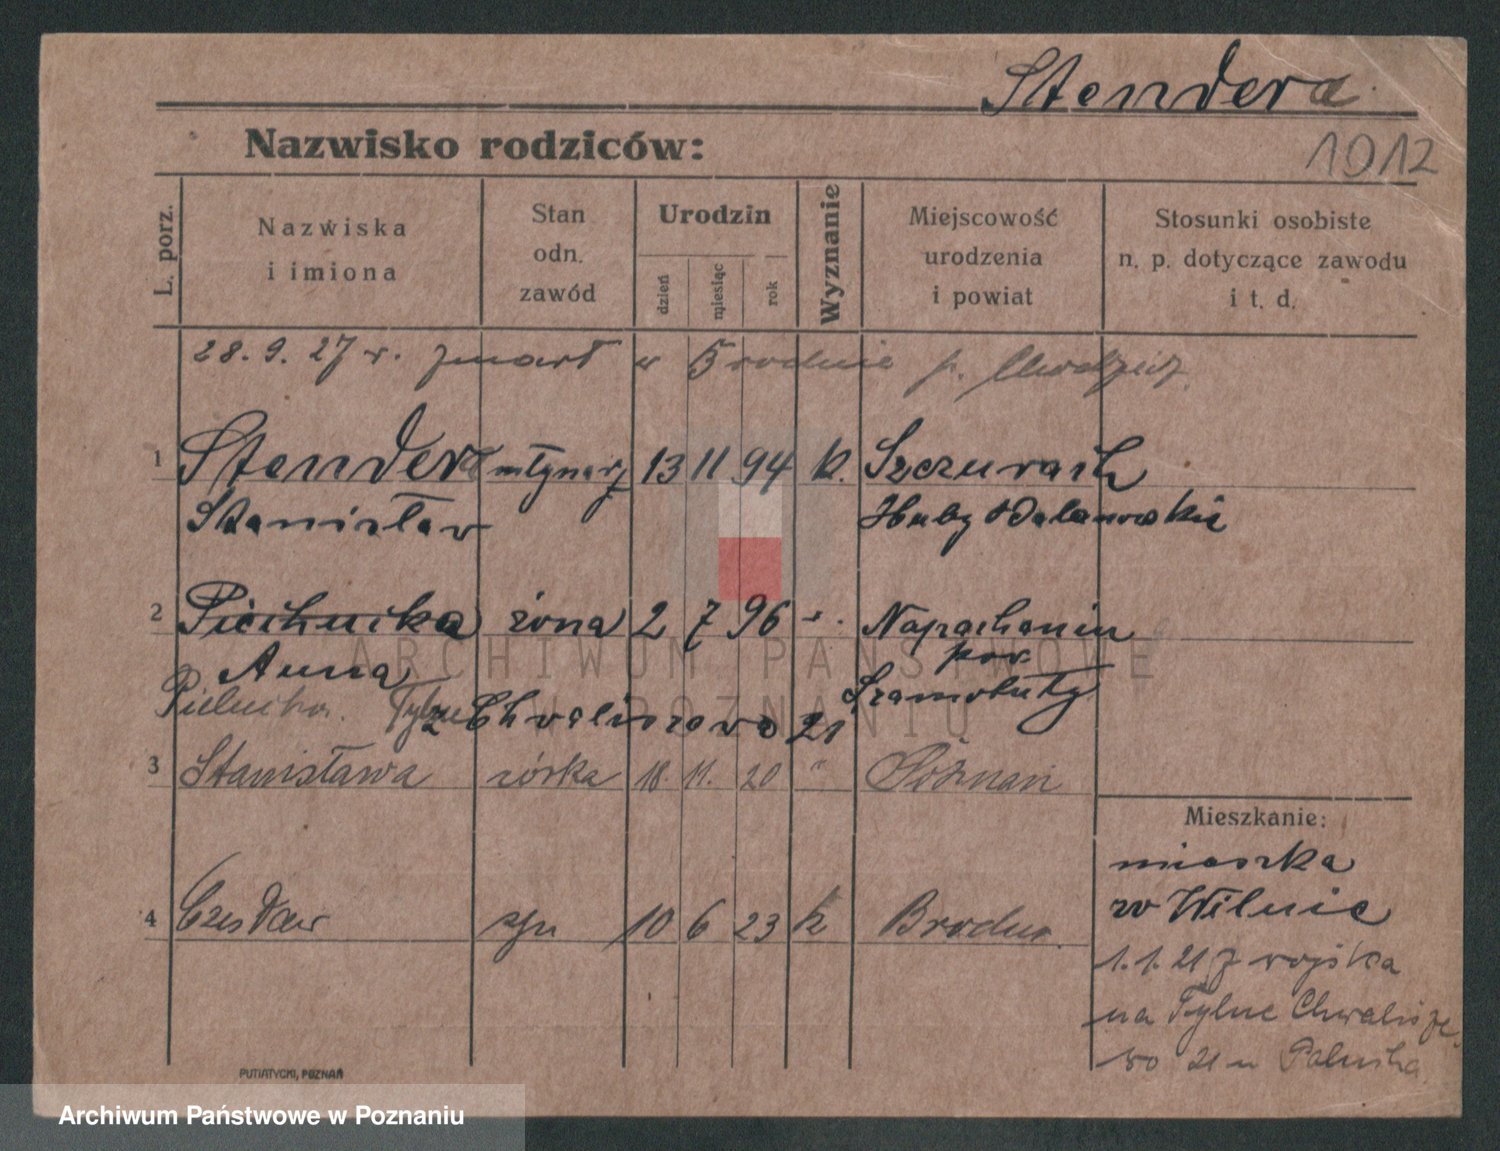 Stendera
1912
Nazwisko rodziców:
L. porz.
Nazwiska i imiona
Stan odn. zawód
Urodzin
dzień
miesiąc
rok
Wyznanie
Miejscowość urodzenia i powiat
Stosunki osobiste n. p. dotyczące zawodu i t. d.
28. 9. 27 r. zmarł w Brodnie p.
1 Stendera młynarz 13 11 94 k.
Stanisław
Huby
2 Piechnicka żona 2 7 96 " Napachanin
Anna pow.
Szamotuły
Tylne Chwaliszewo 21
3 Stanisława córka 18. 11. 20 " Poznań
Mieszkanie:
mieszka
w Wilnie
4 Czesław syn 10 6 23 k
1.1.21 z wojska
na Tylne Chwalisze
wo 21 u
PUTIATYCKI, POZNAŃ
ARCHIWUM PAŃSTWOWE
W POZNANIU
Archiwum Państwowe w Poznaniu